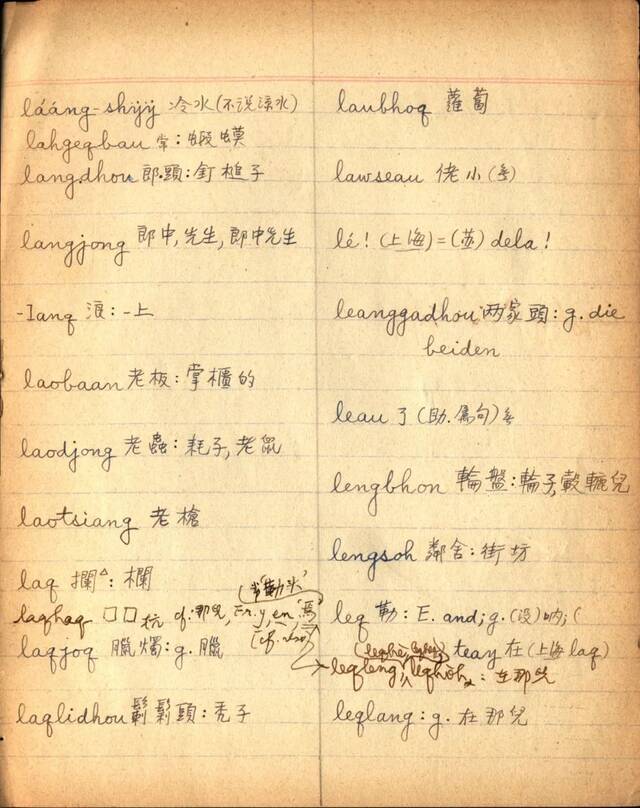 lááng-shÿÿ 冷水(不说涼水)
lahgeqbau 常:蝦蟆
langdhou 郎頭:釘槌子
langjong 郎中,先生,郎中先生
-lanq 浪:-上
laobaan 老板:掌櫃的
laodjong 老蟲:耗子,老鼠
laotsiang 老槍
laq 攔:欄
laqhaq □□ cf.那兒, Fr. y, en
laqjoq 臘燭:g.臘
laqlidhou 鬎鬁頭:秃子
laubhoq 蘿蔔
lawseau 佬小
lé! (上海)=(苏) dela!
leanggadhou 两家頭:g. die
beiden
leau 了(助.屬句)
lengbhon 輪盤:輪子,轂轆兒
lengsoh 鄰舍:街坊
leq 勒: E. and; g.(没)呐;(
teay 在(上海 laq)
leqleng, leqhoh:在那兒
leqlang: g. 在那兒